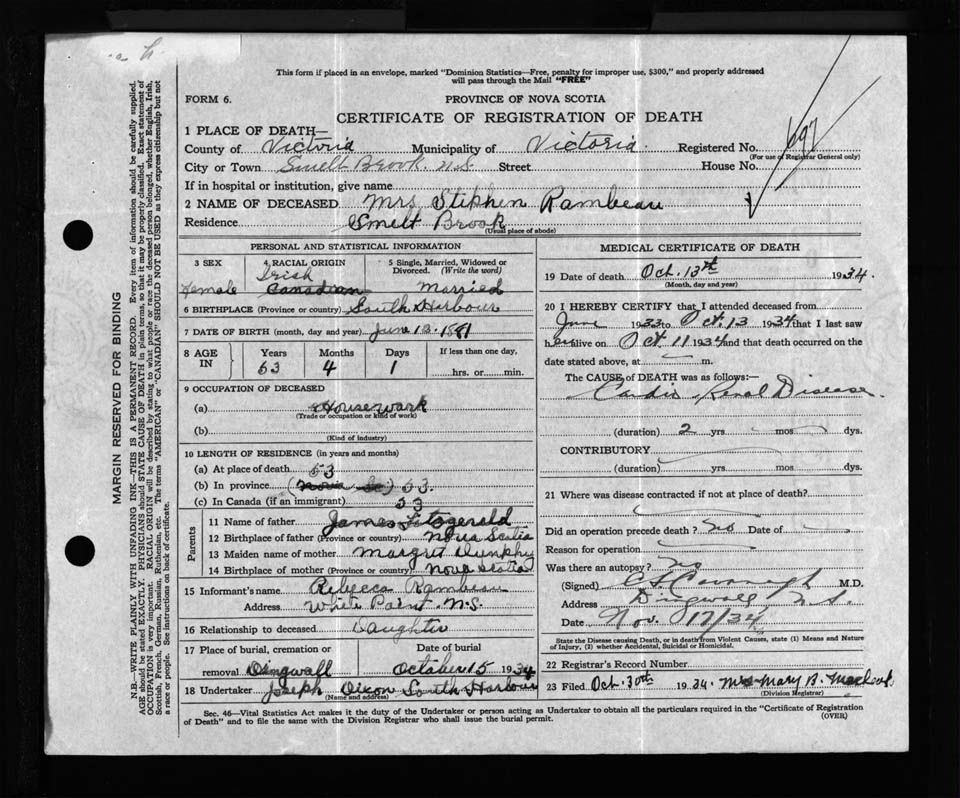 This form if placed in an envelope, marked "Dominion Statistics—Free, penalty for improper use, $300," and properly addressed
will pass through the Mail "FREE"
FORM 6.
PROVINCE OF NOVA SCOTIA
CERTIFICATE OF REGISTRATION OF DEATH
1 PLACE OF DEATH—
County of Victoria Municipality of Victoria. Registered No.
(For use of Registrar General only)
City or Town Smelt Brook. N.S. Street House No.
If in hospital or institution, give name
2 NAME OF DECEASED Mrs Stephen Rambeau
Residence Smelt Brook
(Usual place of abode)
PERSONAL AND STATISTICAL INFORMATION
3 SEX 4 RACIAL ORIGIN 5 Single, Married, Widowed or Divorced. (Write the word)
Female Irish Canadian Married
6 BIRTHPLACE (Province or country) South Harbour
7 DATE OF BIRTH (month, day and year) June 12. 1881
8 AGE IN Years Months Days If less than one day,
53 4 1 hrs. or min.
9 OCCUPATION OF DECEASED
(a) Housework
(Trade or occupation or kind of work)
(b)
(Kind of industry)
10 LENGTH OF RESIDENCE (in years and months)
(a) At place of death 53
(b) In province (Nova Sc) 53.
(c) In Canada (if an immigrant) 53
Parents
11 Name of father James Fitzgerald
12 Birthplace of father (Province or country) Nova Scotia
13 Maiden name of mother Margret Dunphy
14 Birthplace of mother (Province or country) Nova Scotia
15 Informant's name Rebecca Rambeau
Address White Point N.S.
16 Relationship to deceased Daughter
17 Place of burial, cremation or Date of burial
removal Dingwall October 15 1934
18 Undertaker Joseph Dixon South Harbour
(Name and address)
MEDICAL CERTIFICATE OF DEATH
19 Date of death Oct. 13th 1934.
(Month, day and year)
20 I HEREBY CERTIFY that I attended deceased from
June 1933 to Oct. 13 1934 that I last saw
her alive on Oct 11 1934 and that death occurred on the
date stated above, at m.
The CAUSE of DEATH was as follows:—
Cardio Renal Disease
(duration) 2 yrs. mos. dys.
CONTRIBUTORY
(duration) yrs. mos. dys.
21 Where was disease contracted if not at place of death?
Did an operation precede death? No Date of
Reason for operation
Was there an autopsy? No
(Signed) Cavanagh M.D.
Address Dingwall N.S.
Date Nov. 17/34
State the Disease causing Death, or in death from Violent Causes, state (1) Means and Nature
of Injury, (2) whether Accidental, Suicidal or Homicidal.
22 Registrar's Record Number
23 Filed Oct. 30th 1934. Mrs Mary B.
(Division Registrar)
Sec. 46—Vital Statistics Act makes it the duty of the Undertaker or person acting as Undertaker to obtain all the particulars required in the "Certificate of Registration
of Death" and to file the same with the Division Registrar who shall issue the burial permit.
(OVER)
MARGIN RESERVED FOR BINDING
N.B.—WRITE PLAINLY WITH UNFADING INK—THIS IS A PERMANENT RECORD. Every item of information should be carefully supplied.
AGE should be stated EXACTLY. PHYSICIANS should STATE CAUSE OF DEATH in plain terms, so that it may be properly classified. Exact statement of
OCCUPATION is very important. RACIAL ORIGIN will be described by stating to what people or race the deceased person belonged, whether English, Irish,
Scottish, French, German, Russian, Ruthenian, etc. The terms "AMERICAN" or "CANADIAN" SHOULD NOT BE USED as they express citizenship but not
a race or people. See instructions on back of certificate.